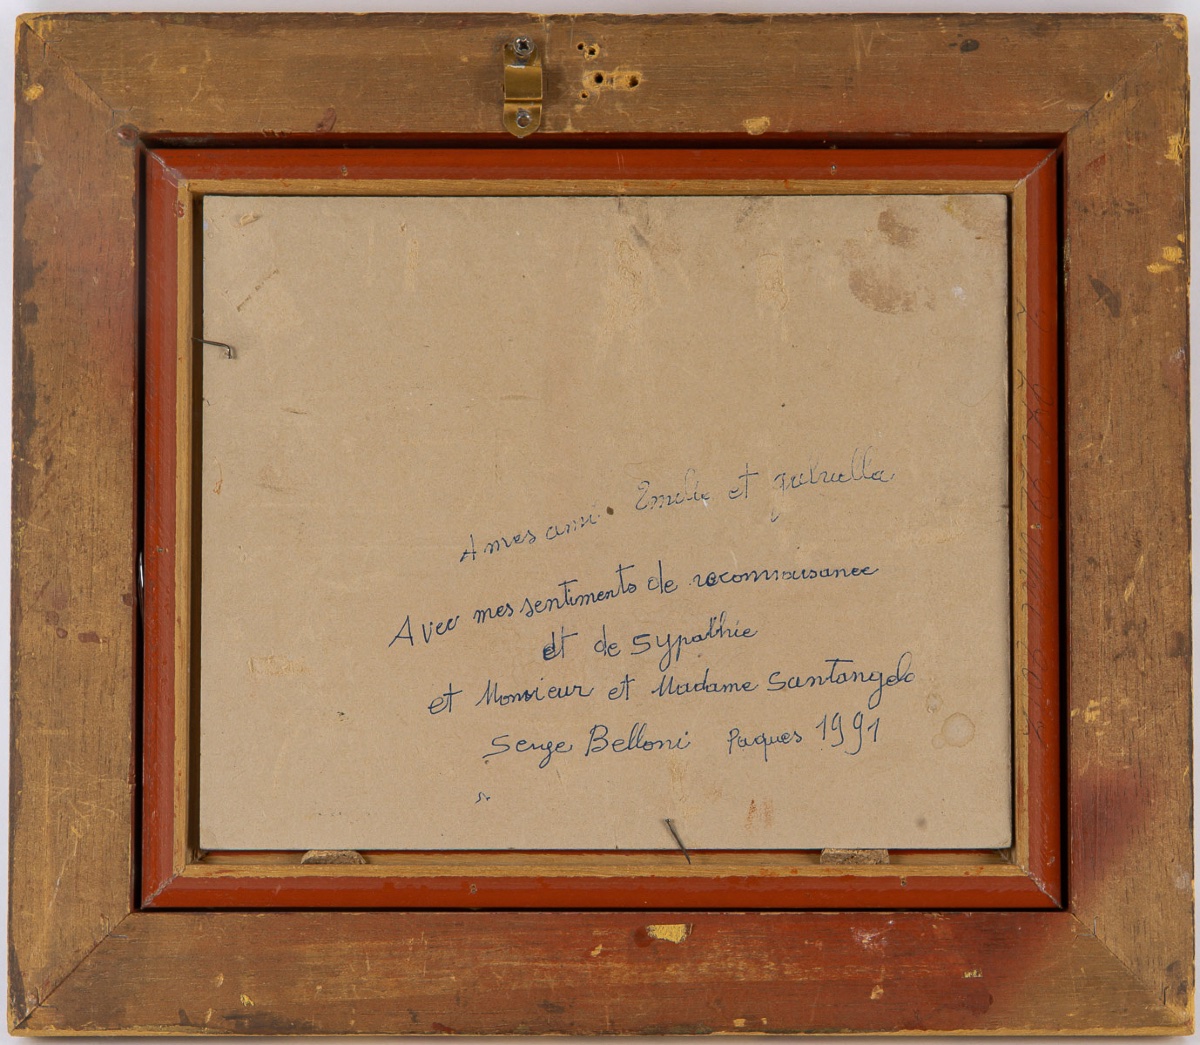 A mes ami. Emelie et
Avec mes sentiments de reconnaisance
et de Sypathie
et Monsieur et Madame Santangelo
Serge Belloni Paques 1991